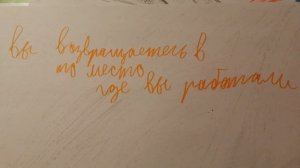 вы возвращаетесь в
то место
где вы работали